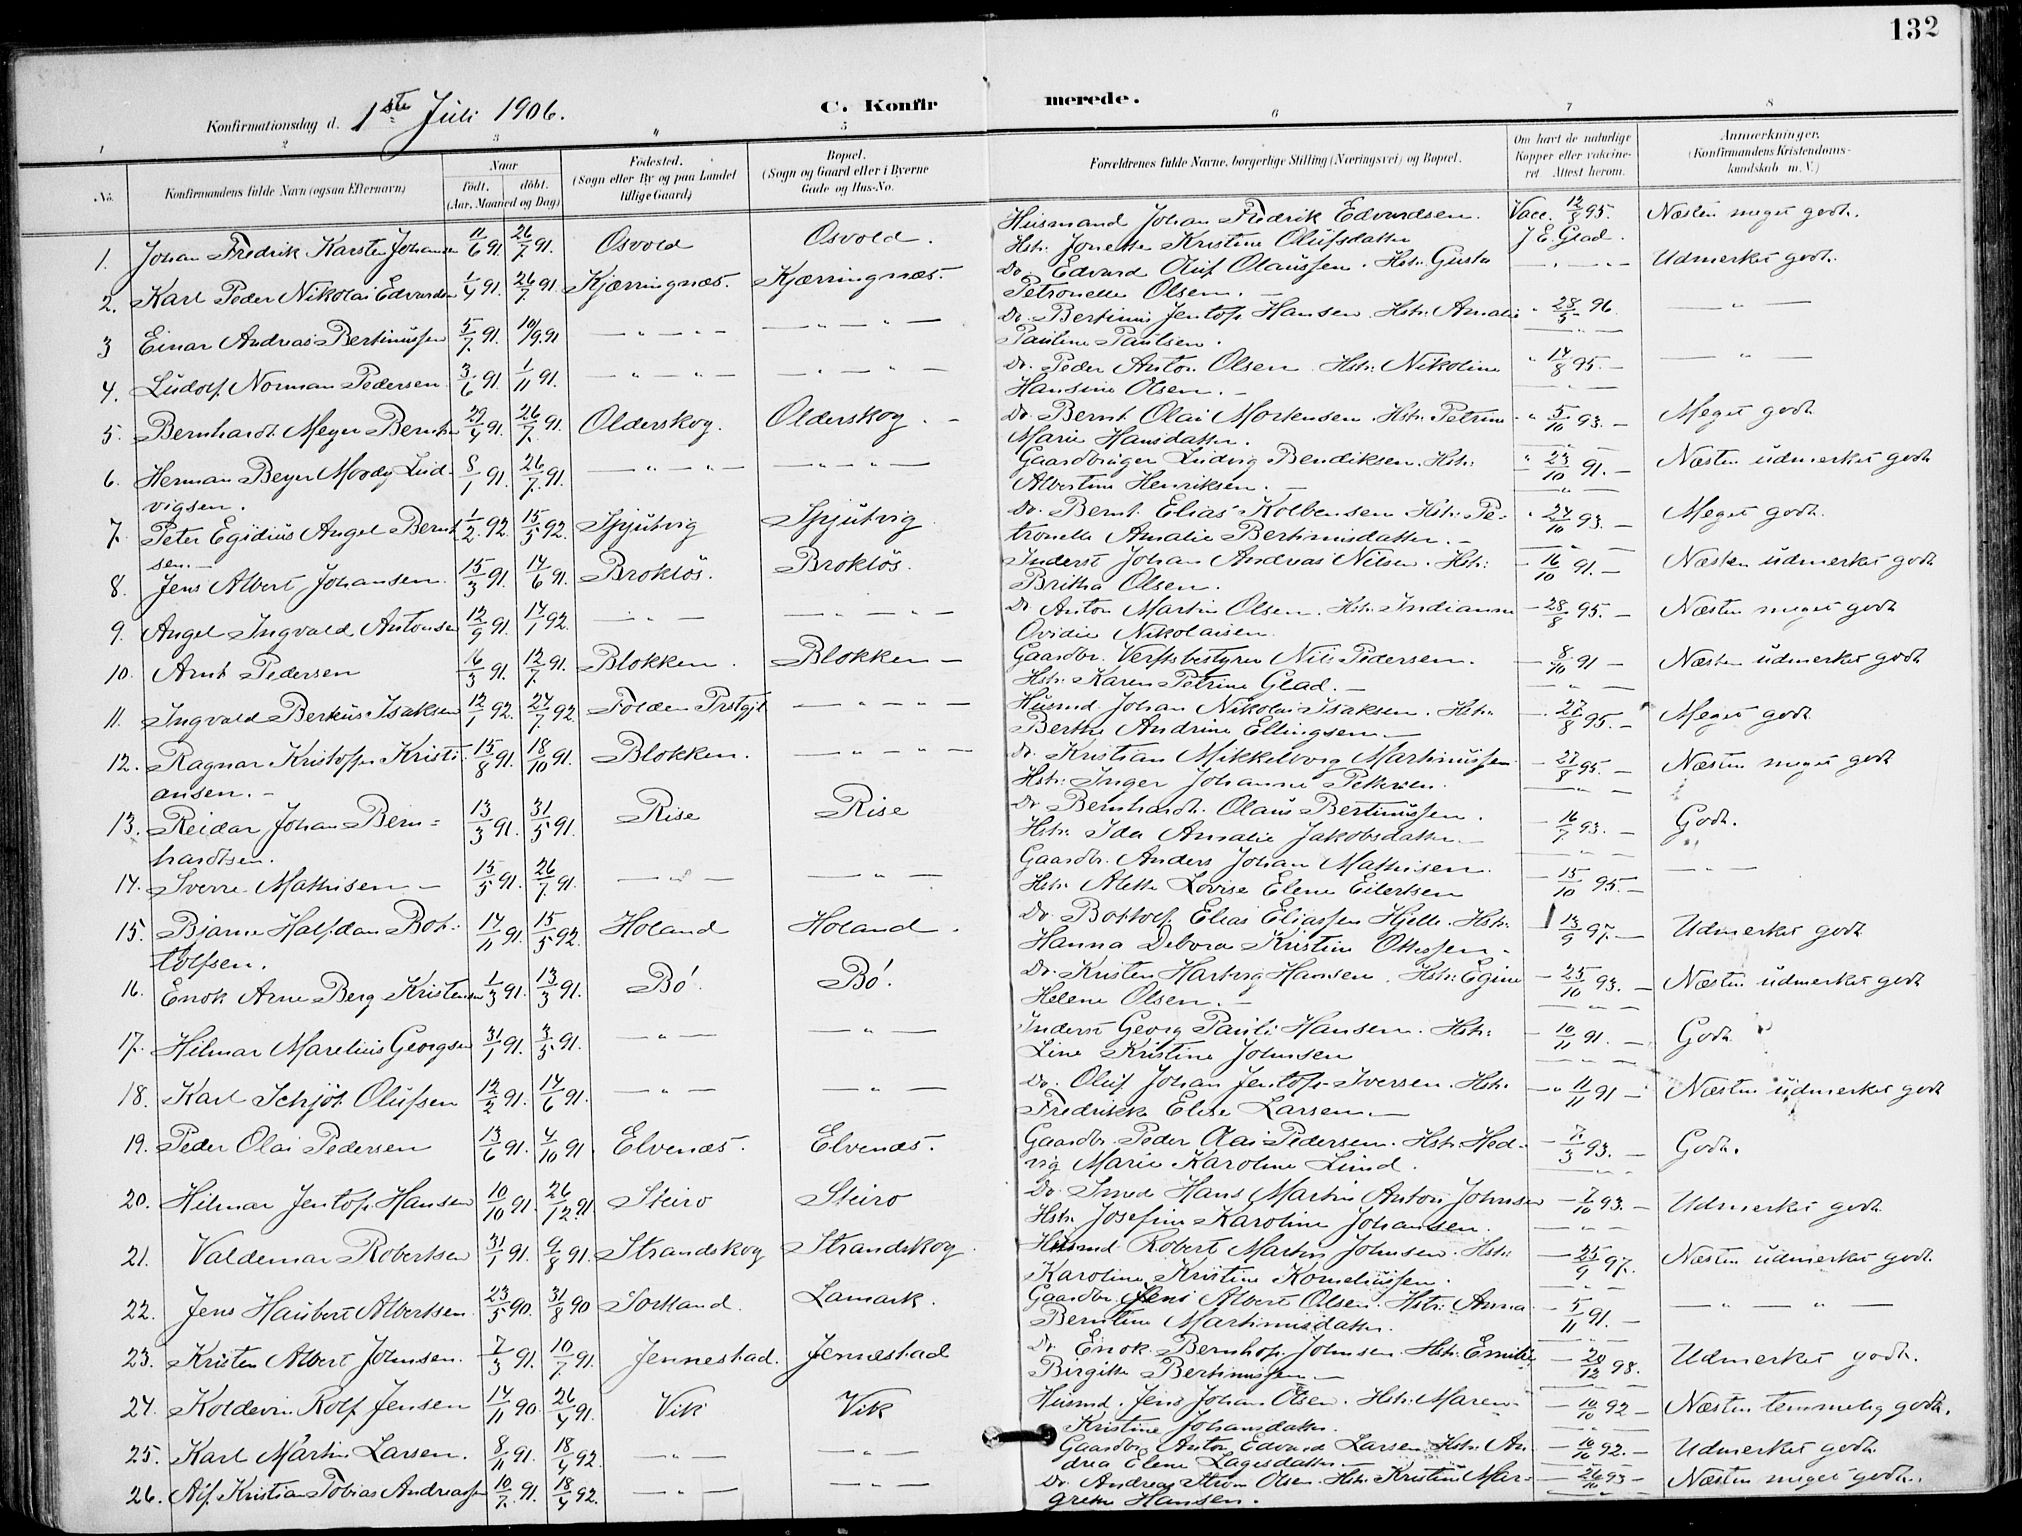 132
Konfirmationsdag d. 1ste Juli 1906.
C. Konfirmerede.
1 2 3 4 5 6 7 8
No. Konfirmandens fulde Navn (ogsaa Efternavn)
Naar
født. døbt.
(Aar, Maaned og Dag)
Fødested.
(Sogn eller By og paa Landet
tillige Gaard)
Bopæl.
(Sogn og Gaard eller i Byerne
Gade og Hus-No.
Forældrenes fulde Navne, borgerlige Stilling (Næringsvei) og Bopæl.
Om havt de naturlige
Kopper eller vakcine-
ret. Attest herom.
Anmærkninger.
(Konfirmandens Kristendoms-
kundskab m. V.)
1. Johan Fredrik Karsten Johansen 11/6 91. 26/7 91. Osvold Osvold. Husmand Johan Fredrik Edvardsen. Vacc. 12/8 95. Næsten meget godt.
Hstr. Jonette Kristine Olufsdatter J E. Glad.
2. Karl Peder Nikolai Edvardsen 1/4 91. 26/7 91 Kjærringnæs. Kjærringnæs. Do. Edvard Oluf Olaussen. Hstr. Gusta — " — Udmerket godt.
Petronelle Olsen. —
3 Einar Andreas Bertinussen 5/7 91. 10/9 91 — " — " — — " — " — Do. Bertinus Jentoft Hansen. Hstr. Amalie " 28/5 96 — " —
Pauline Paulsen.
4. Ludolf Norman Pedersen 3/6 91. 1/11 91. — " — " — — " — " — Do. Peder Anton Olsen. Hstr. Nikoline " 14/8 95. — — " —
Hansine Olsen. —
5. Bernhardt Meyer Berntsen 29/4 91. 26/7 91. Olderskog. Olderskog. — Do. Bernt Olai Mortensen. Hstr. Petrine " 5/10 93. — Meget godt
Marie Hansdatter.
6. Herman Beyer Moody Lud- 8/1 91. 26/7 91. — " — " — — " — " — Gaardbruger Ludvig Bendiksen. Hstr. " 23/10 91. — Næsten udmerket godt
vigsen. Albertine Henriksen. —
7. Peter Egidius Angel Bernt 1/2 92. 15/5 92. Spjutvig Spjutvig. Do. Bernt Elias Kolbensen Hstr. Pe- " 24/10 93. — Meget godt.
sen. — tronelle Amalie Bertinusdatter. —
8. Jens Albert Johansen. 15/3 91. 14/6 91. Brokløs. Brokløs. Inderst Johan Andreas Nilsen. Hstr. — 16/10 91. — Næsten udmerket godt
Britha Olsen.
9. Angel Ingvald Antonsen 12/9 91. 17/1 92. — " — — " — " — Do Anton Martin Olsen. Hstr. Indianna — 28/8 95. — Næsten meget godt
Ovidie Nikolaisen.
10. Arnt Pedersen 16/3 91. 12/7 91. Blokken. Blokken — Gaardbr. Verftsbestyrer Nils Pedersen. — 8/10 91 — Næsten udmerket godt
Hstr. Karen Petrine Glad. —
11. Ingvald Berkus Isaksen 12/1 92. 24/7 92. Folden Prstgjl — " — " — Husmd. Johan Nikolai Isaksen. Hstr. — 27/8 95. — Meget godt
Berthe Andrine Ellingsen —
12. Ragnar Kristoffer Kristi- 15/8 91. 18/10 91. Blokken. — " — " — Do. Kristian Mikkelborg Martinussen — 27/8 95. — Næsten meget godt
ansen. — Hstr. Inger Johanne Pettersen.
13. Reidar Johan Bern= 13/3 91. 31/5 91. Rise Rise Do Bernhardt Olaus Bertinussen. — 16/7 93. — Godt.
hardtsen. Hstr. Ida Amalie Jakobsdatter. —
14. Sverre Mathisen — 15/5 91. 26/7 91. — " — — " — Gaardbr. Anders Johan Mathisen. — 15/10 95. — — " —
Hstr. Alette Lovise Elene Eilertsen
15. Bjarne Halfdan Bot- 14/11 91. 15/5 92. Holand Holand. Do. Bottolf Elias Eliassen Hjelle. Hstr. — 13/9 97. — Udmerket godt
tolfsen. Hanna Debora Kristine Ottessen —
16. Enok Arne Berg Kristensen 1/3 91. 13/3 91. Bø. Bø. Do. Kristen Hartvig Hansen. Hstr. Egine — 25/10 93. — Næsten udmerket godt
Helene Olsen. —
17. Hilmar Marelius Georgsen 31/1 91. 3/5 91. — " — — " — Inderst Georg Pauli Hansen. Hstr. — 10/11 91. — Godt.
Line Kristine Johnsen
18. Karl Schjøt Olufsen 12/2 91. 14/6 91. — " — — " — Do. Oluf Johan Jentoft Iversen. Hstr. — " 11/11 91 — Næsten udmerket godt
Fredrikke Elise Larsen. —
19. Peder Olai Pedersen 13/6 91. 4/10 91. Elvenæs. Elvenæs. Gaardbr. Peder Olai Pedersen. Hstr. Hed- — 7/3 93. — Godt.
vig Marie Karoline Lund.
20. Hilmar Jentoft Hansen 10/10 91. 26/12 91. Steiro Steiro Do. Smed Hans Martin Anton Johnsen — 7/10 93. — Udmerket godt
Hstr. Josefine Karoline Johansen.
21. Valdemar Robertsen 31/1 91. 9/8 91. Strandskog Strandskog. Husmd. Robert Martin Johnsen. Hstr. — 25/9 97. Næsten udmerket godt.
Karoline Kristine Korneliussen.
22. Jens Haubert Albertsen. 23/5 90. 31/8 90 Sortland. Lamark. Gaardbr. Jens Albert Olsen. Hstr. Anna — 5/11 91. — — " — " —
Berntine Martinusdatter.
23. Kristen Albert Johnsen. 7/3 91. 10/7 91. Jennestad. Jennestad Do. Enok Bernhoft Johnsen. Hstr. Emilie — 20/12 98. Udmerket godt.
Birgitte Bertinussen —
24. Koldevin Rolf Jensen 14/11 90. 26/4 91. Vik Vik Husmd. Jens Johan Olsen. Hstr. Maren — 10/10 92 — Næsten temmelig godt.
Kristine Johansdatter.
25. Karl Martin Larsen. 8/11 91. 18/4 92. — " — — " — Gaardbr. Anton Edvard Larsen Hstr. An- — 10/10 92. — Udmerket godt.
drea Elene Lagesdatter —
26. Alf Kristian Tobias Andreassen 10/7 91. 18/4 92. — " — — " — Do. Andreas Strøm Olsen. Hstr. Kristine Mar- — 26/10 93 — Næsten meget godt.
grethe Hansen.